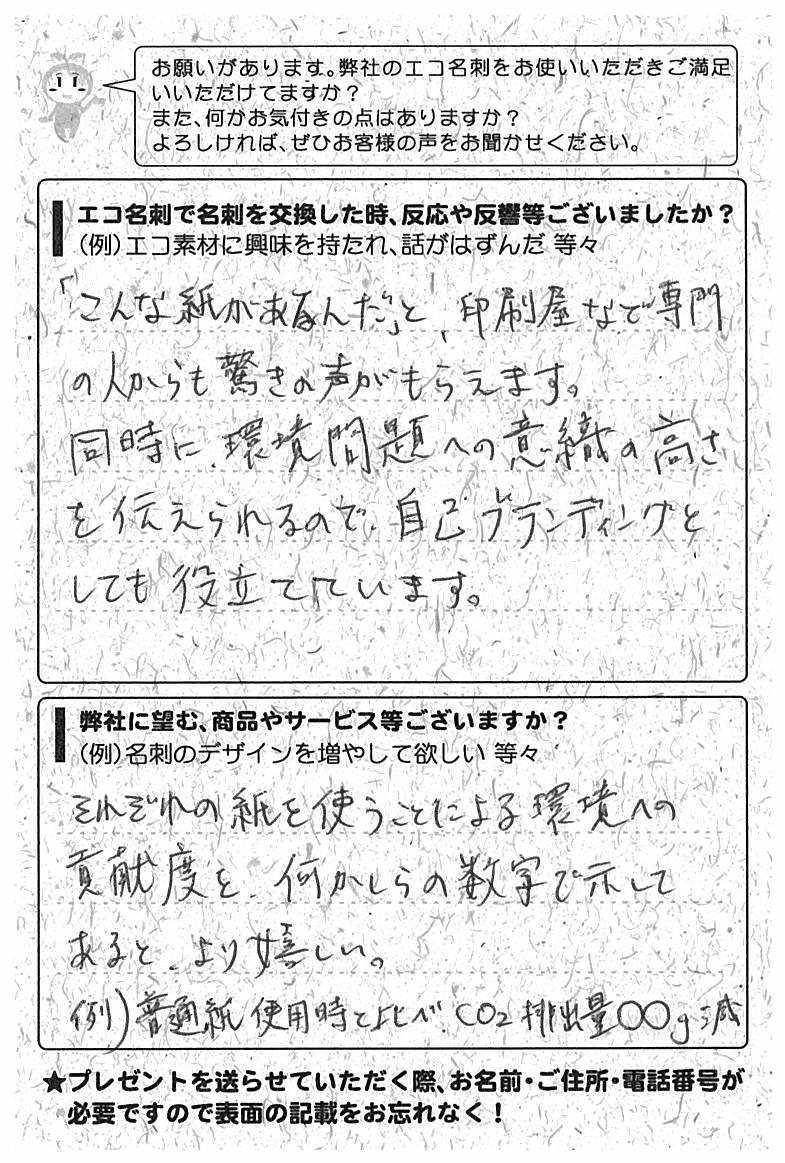 お願いがあります。弊社のエコ名刺をお使いいただきご満足
いいただけてますか?
また、何かお気付きの点はありますか?
よろしければ、ぜひお客様の声をお聞かせください。
エコ名刺で名刺を交換した時、反応や反響等ございましたか?
(例)エコ素材に興味を持たれ、話がはずんだ 等々
「こんな紙があるんだ」と、印刷屋などで専門
の人からも驚きの声がもらえます。
同時に、環境問題への意織の高さ
を伝えられるので、自己ブランディングと
しても役立てています。
弊社に望む、商品やサービス等ございますか?
(例)名刺のデザインを増やして欲しい 等々
それぞれの紙を使うことによる環境への
貢献度を、何かしらの数字で示して
あると、より嬉しい。
例)普通紙使用時と比べ、CO2排出量〇〇g減
★プレゼントを送らせていただく際、お名前・ご住所・電話番号が
必要ですので表面の記載をお忘れなく!